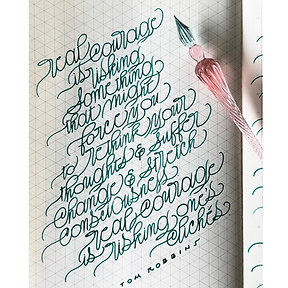 real courage
is risking
something
that might
force you
to rethink your
thoughts & suffer
change & stretch
consciousness
real courage
is risking one's
clichés
TOM ROBBINS